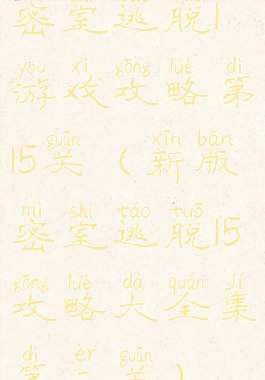 密室逃脱1
yóu xì gōng lüè dì
游戏攻略第
guān xīn bǎn
15关（新版
mì shì táo tuō
密室逃脱15
gōng lüè dà quán jí
攻略大全集
dì èr guān
第二关）